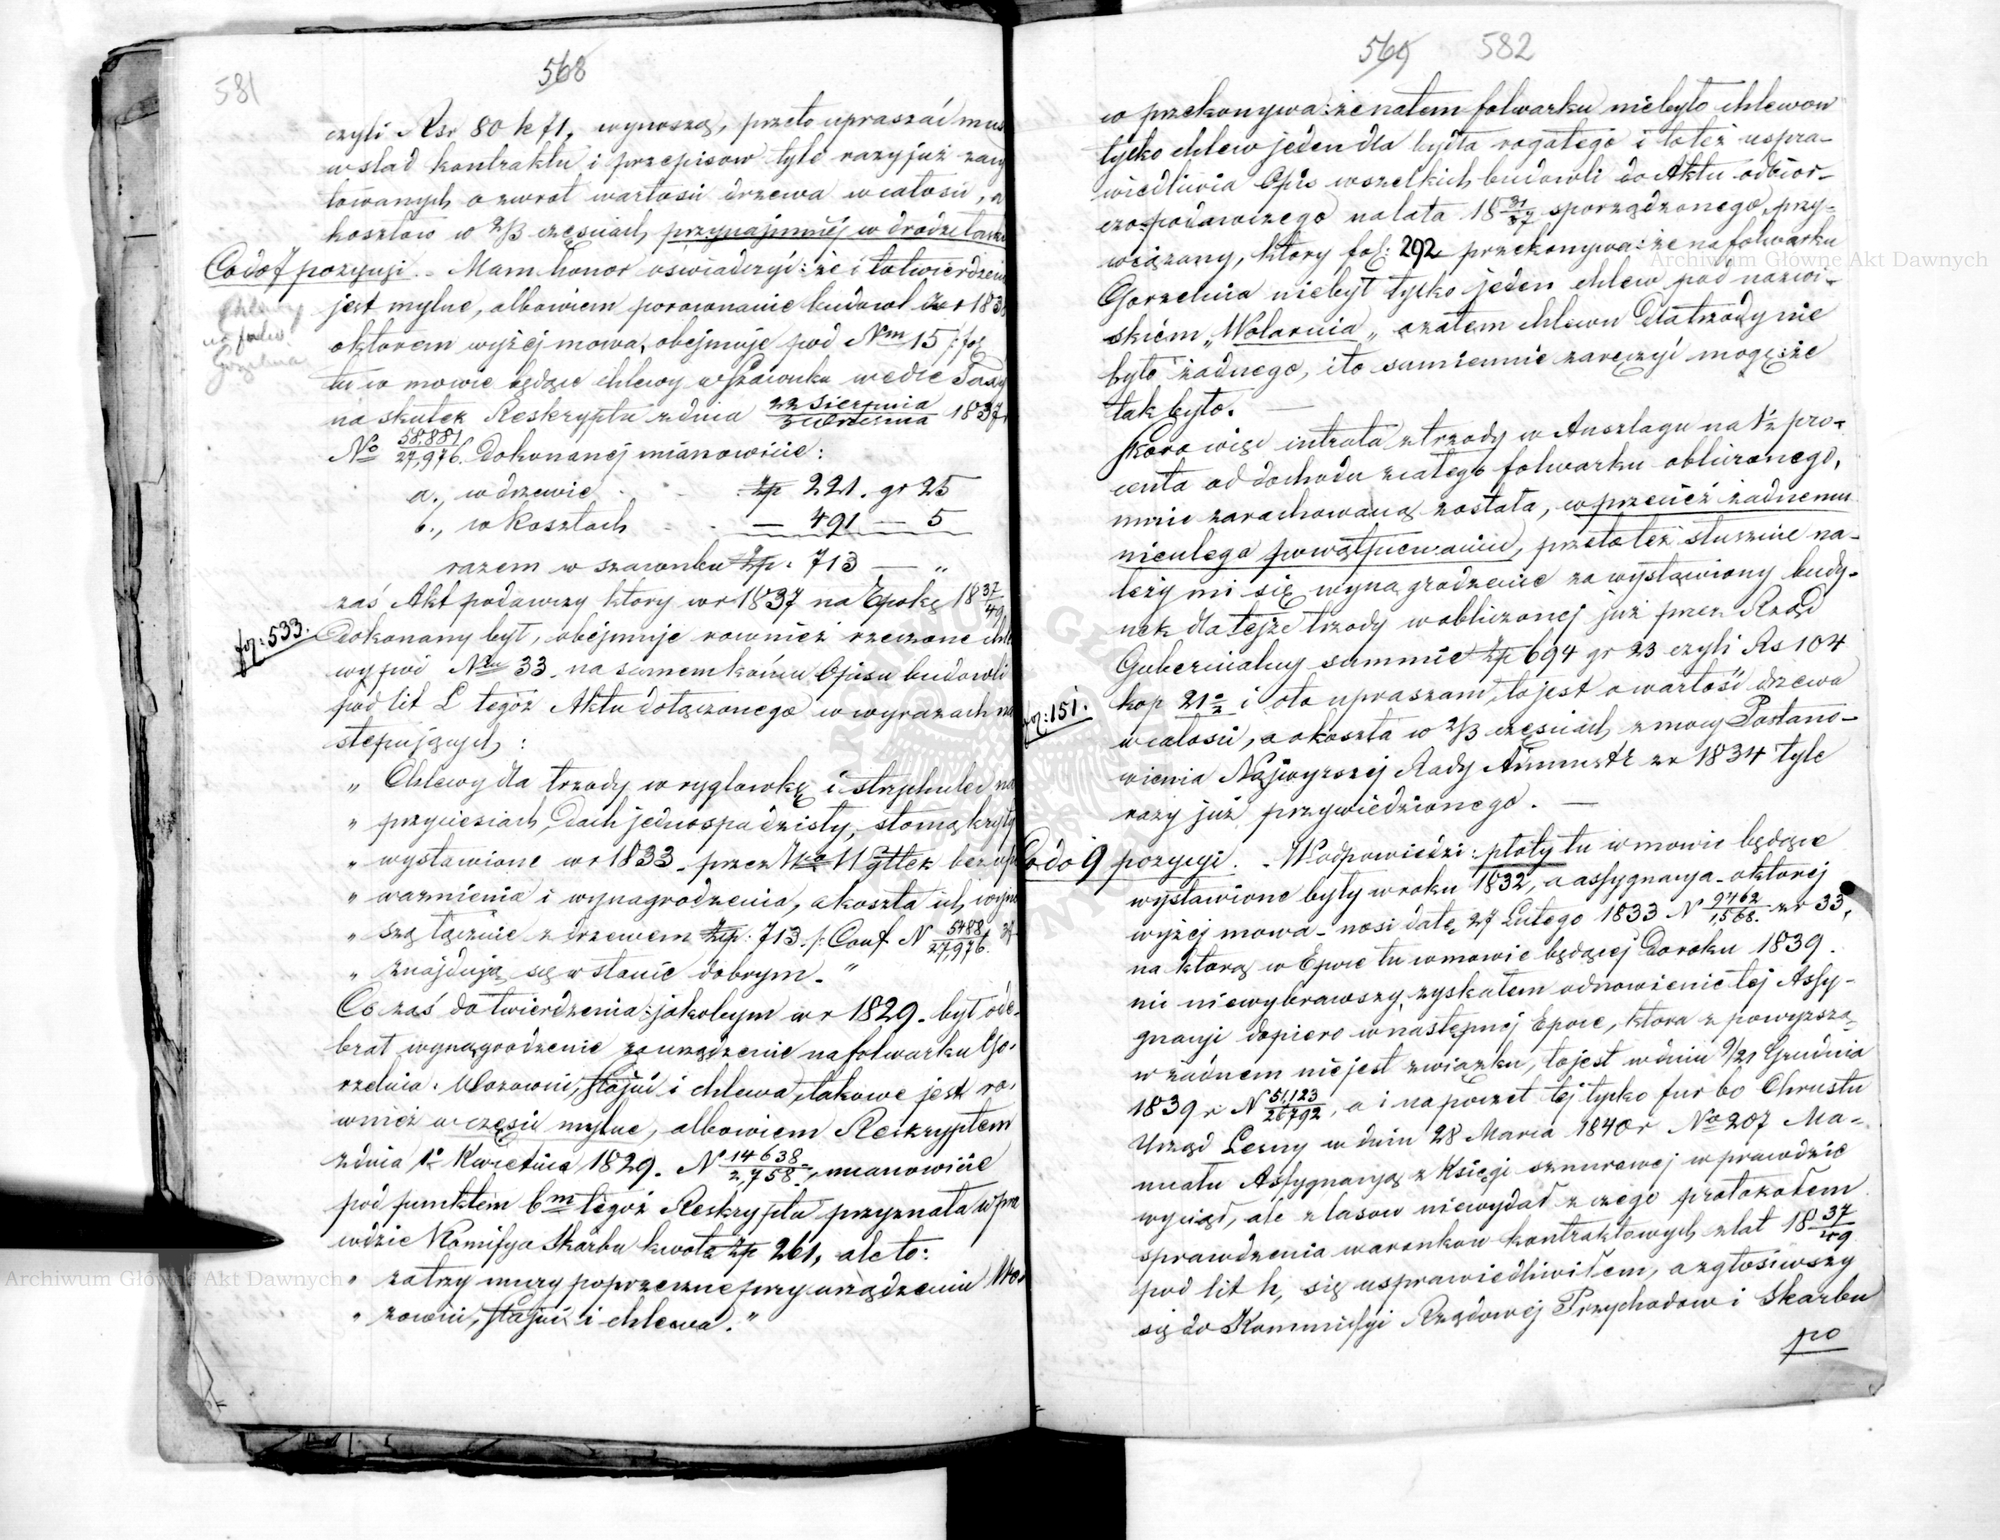 581
568
czyli Rsr 80 k 71, wynoszą, przeto upraszać mus
w ślad kontraktu i przepisow tyle razy już
towanych o zwrot wartości drzewa w całości, a
kosztów w 2/3 częściach, przynajmniej w drodze
Co do f pozycyi. - Mam honor oświadczyć: że i to twierdzenie
Chlewy
na folw.
Gorzelnia
jest mylne, albowiem porównanie budowl z r 183
o którem wyżej mowa, obejmuje pod Nm 15
tu w mowie będące chlewy w szacunku wedle Taxy
na skutek Reskryptu z dnia 22 Sierpnia / 3 Września 1837 r
No 58,881 / 27,976. dokonanej mianowicie:
a., w drzewie . - : zp 221. gr 25
b., w kosztach - . — 491 — 5
razem w szacunku zp: 713 — „
zaś Akt podawczy który w r 1837 na Epokę 18 37/49
fol: 533.
dokonany był, obejmuje rownież rzeczone chle
wy pod Nrm 33. na samem końcu Opisu budowli
pod lit L tegoż Aktu dołączonego w wyrazach na
stępujących:
„ Chlewy dla trzody w ryglowkę i na
„ przyciesiach, Dach jednospadzisty, słomą kryty
„ wystawione w r 1833. przez bez
„ ważnienia i wynagrodzenia, a koszta ich wyno
„ szą łącznie z drzewem zp: 713. /: Conf N 5488 / 27,976.
„ znajdują się w stanie dobrym. "
Co zaś do twierdzenia: jakobym w r 1829. był ode-
brał wynagrodzenie za urządzenie na folwarku Go-
rzelnia. Wozowni, stajni i chlewa, takowe jest ro-
wnież w części mylne, albowiem Reskryptem
z dnia 1o Kwietnia 1829. N 14638 / 2,758., mianowicie
pod punktem 6m tegoż Reskryptu przyznała wpra
wdzie Kommissya Skarbu kwotę zp 261, ale to:
" za trzy mury poprzeczne przy urządzeniu Wo
" zowni, stajni i chlewa. "
569 582
o przekonywa: że na tem folwarku niebyło chlewow
tylko chlew jeden dla bydła rogatego i to też uspra-
wiedliwia Opis wszelkich budowli do Aktu odbior-
czo-podawczego na lata 18 31/37 sporządzonego, przy-
wiązany, ktory fol: 292 przekonywa: że na folwarku
Gorzelnia niebył tylko jeden chlew pod nazwi-
skiem „Wolarnia„ a zatem chlewu dla trzody nie
było żadnego, i to sumiennie zaręczyć mogę: że
tak było. —
Skoro więc intrata z trzody w Anszlagu na 1/2 pro-
centa od dochodu z całego folwarku obliczonego,
mnie zarachowaną została, co przecież żadnemu
nieulega powątpiewaniu, przeto też słusznie na-
leży mi się wynagrodzenie za wystawiony budy-
nek dla tejże trzody w obliczonej już przez Rząd
Gubernialny summie zp 694 gr 23 czyli Rs 104
fol: 151.
kop 21 1/2 i o to upraszam, to jest o wartość drzewa
w całości, a o koszta w 2/3 częściach z mocy Postano-
wienia Najwyższej Rady Administr: z r 1834 tyle
razy już przywiedzionego. —
Co do g pozycyi. - W odpowiedzi: płoty tu w mowie będące
wystawione były w roku 1832, a assygnacya - o ktorej
wyżej mowa - nosi datę 27 Lutego 1833 N 9762 / 1,568. z r 33,
na ktorą w Epoce tu w mowie będącej do roku 1839.
nic niewybrawszy, zyskałem odnowienie tej Assy-
gnacyi dopiero w następnej Epoce, ktora z powyższą
w żadnem nie jest związku, to jest w dniu 9/21 Grudnia
1839 r N 51,123 / 26792, a i na poczet tej tylko fur 60 Chrustu
Urząd Leśny w dniu 28 Marca 1840 r No 207 Ma-
nuału Assygnacyą z Księgi sznurowej wprawdzie
wyciął, ale z lasow niewydał z czego protokołem
sprawdzenia warunkow kontraktowych z lat 18 37/49
pod lit h, się usprawiedliwiłem, a zgłosiwszy
się do Kommissyi Rządowej Przychodow i Skarbu
po
Archiwum Główne Akt Dawnych
Archiwum Główne Akt Dawnych